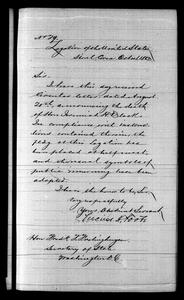 No. 79.
Legation of the United States
Seoul Corea Oct 1884
Sir
I have this day received
Circular letter dated August
20th, announcing the death
of Hon
In compliance with instruc-
tions contained therein the
flag at this Legation has
been placed at half mast
and the usual symbols of
public mourning have been
adopted.
I have the honor to be, Sir
Very respectfully
Your Obedient Servant
Lucius H. Foote
Hon
Secretary of State
Washington D.C.